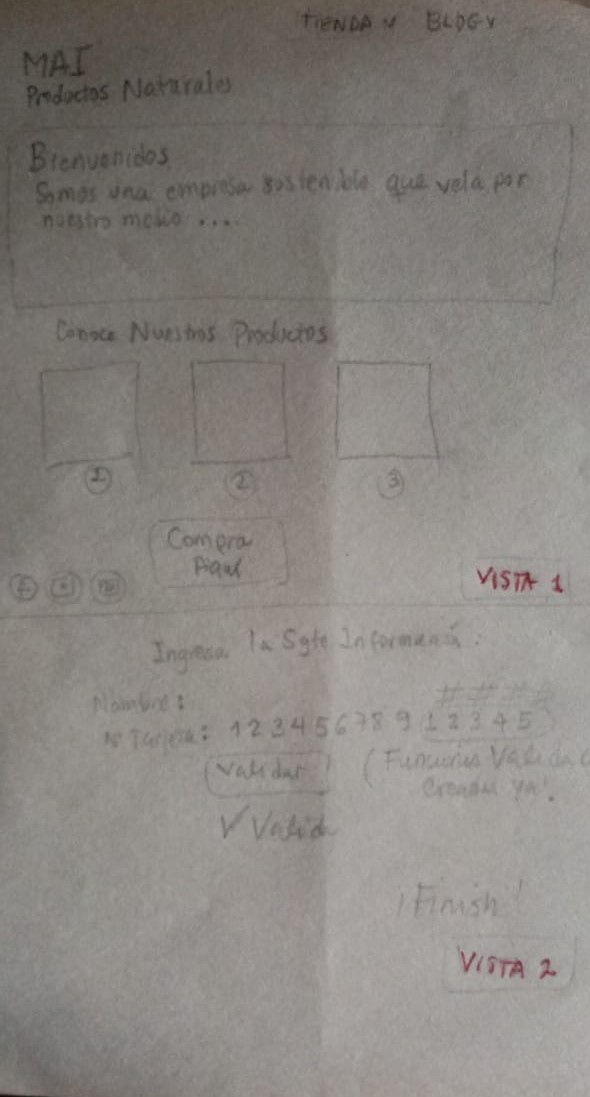 TIENDA v BLOG v
MAI
Productos Naturales
Bienvenidos
Somos una empresa sostenible que vela por
nuestro medio ....
Conoce Nuestros Productos
1 2 3
Compra
Aquí
VISTA 1
Ingresa la Sgte Información:
Nombre:
# # # #
Nº Tarjeta: 1 2 3 4 5 6 7 8 9 1 2 3 4 5
Validar
(Funciones
Creadas ya!
✓ Valida
¡Finish!
VISTA 2